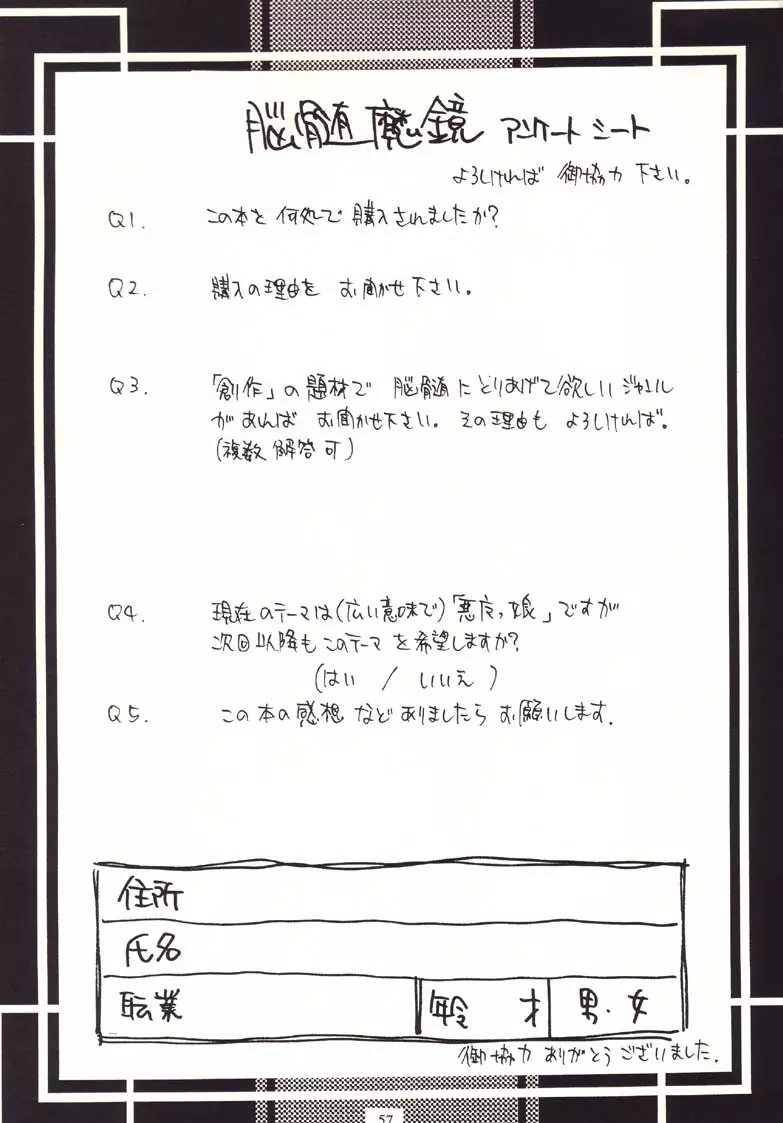 脳髄魔鏡 アンケートシート
よろしければ 御協力 下さい。
Q1. この本を何処で購入されましたか?
Q2. 購入の理由を お聞かせ下さい。
Q3. 「創作」の題材で 脳髄にとりあげて欲しいジャンル
があれば お聞かせ下さい。その理由も よろしければ。
(複数解答可)
Q4. 現在のテーマは(広い意味で)「悪落ち娘」ですが
次回以降もこのテーマを希望しますか?
(はい / いいえ)
Q5. この本の感想などありましたらお願いします。
住所
氏名
職業 年令 才 男・女
御協力ありがとうございました。
57